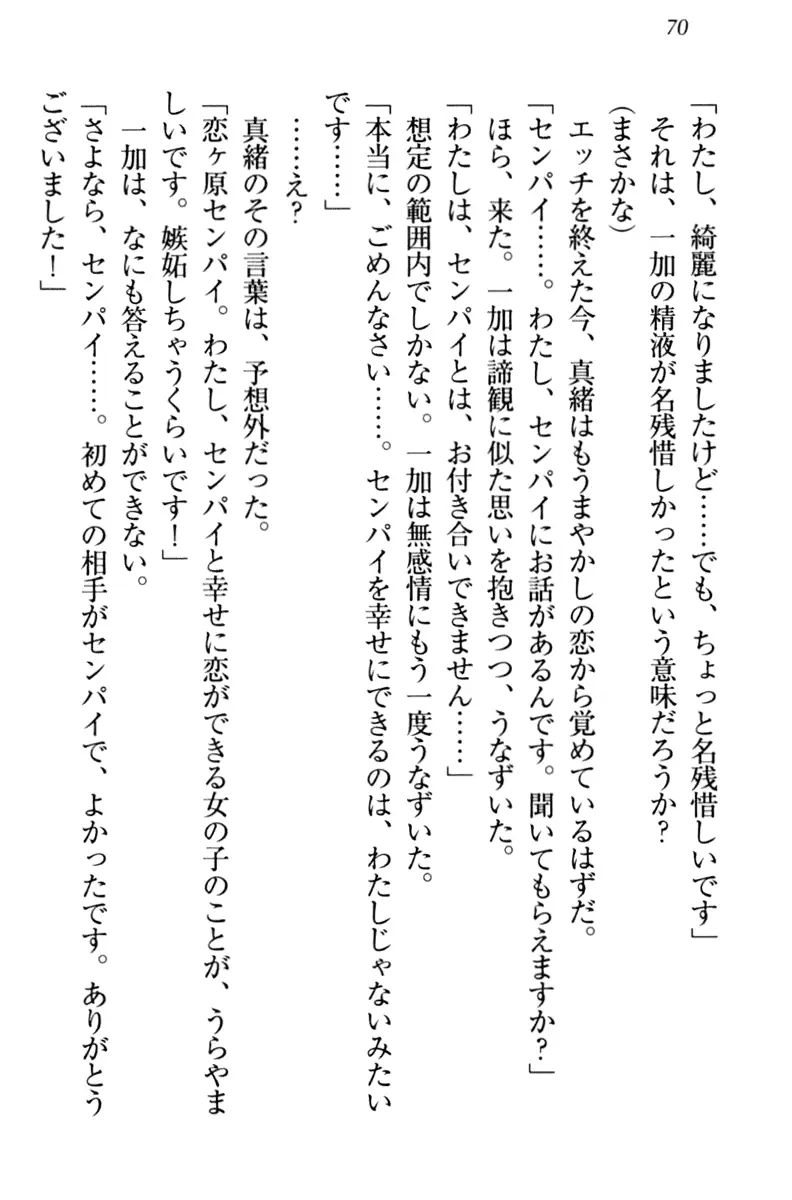 70
「わたし、綺麗になりましたけど……でも、ちょっと名残惜しいです」
それは、一加の精液が名残惜しかったという意味だろうか？
(まさかな)
エッチを終えた今、真緒はもうまやかしの恋から覚めているはずだ。
「センパイ……。わたし、センパイにお話があるんです。聞いてもらえますか？」
ほら、来た。一加は諦観に似た思いを抱きつつ、うなずいた。
「わたしは、センパイとは、お付き合いできません……」
想定の範囲内でしかない。一加は無感情にもう一度うなずいた。
「本当に、ごめんなさい……。センパイを幸せにできるのは、わたしじゃないみたい
です……」
……え？
真緒のその言葉は、予想外だった。
「恋ヶ原センパイ。わたし、センパイと幸せに恋ができる女の子のことが、うらやま
しいです。嫉妬しちゃうくらいです！」
一加は、なにも答えることができない。
「さよなら、センパイ……。初めての相手がセンパイで、よかったです。ありがとう
ございました！」